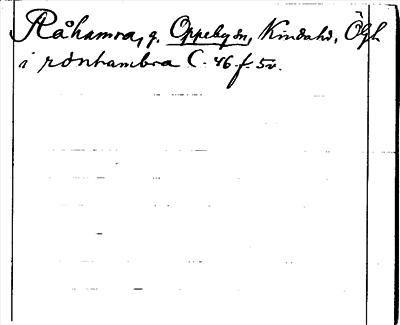 Råhamra, g. Oppebyn, Kindahd, Ögl
i rörhambra C. 46 f. 5v.